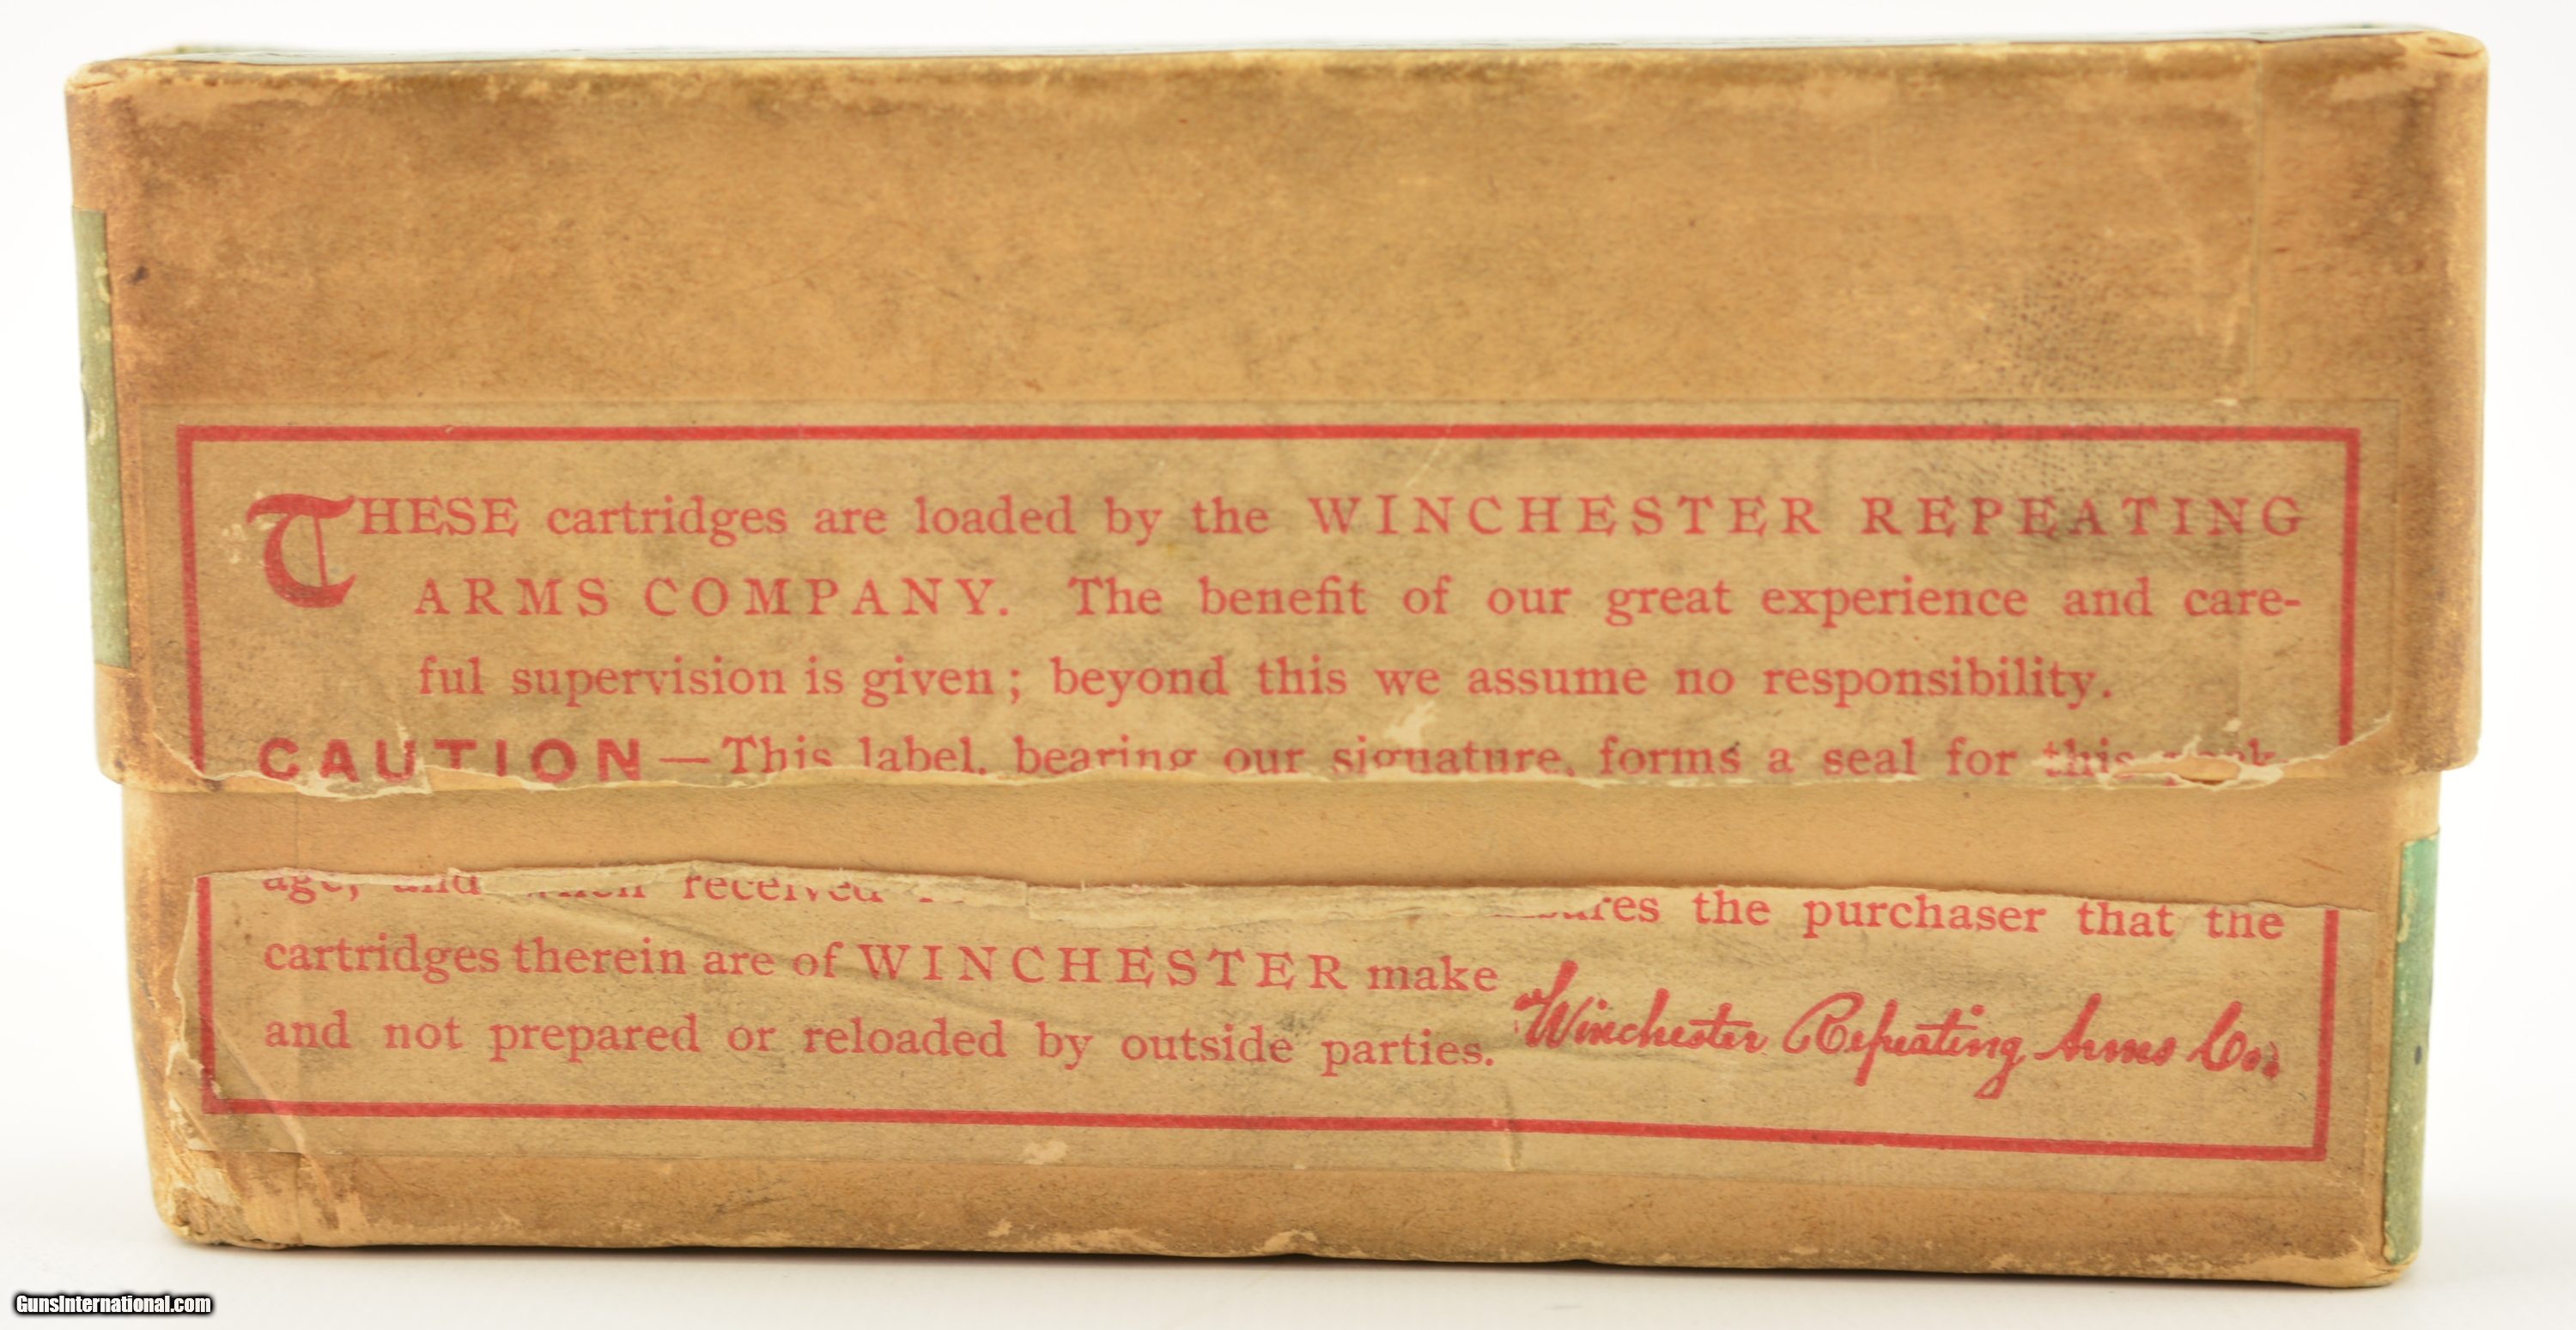 THESE cartridges are loaded by the WINCHESTER REPEATING
ARMS COMPANY. The benefit of our great experience and care-
ful supervision is given; beyond this we assume no responsibility.
CAUTION—This label, bearing our signature, forms a seal for this
age, and when received the purchaser that the
cartridges therein are of WINCHESTER make
and not prepared or reloaded by outside parties.
Winchester Repeating Arms Co.
GunsInternational.com